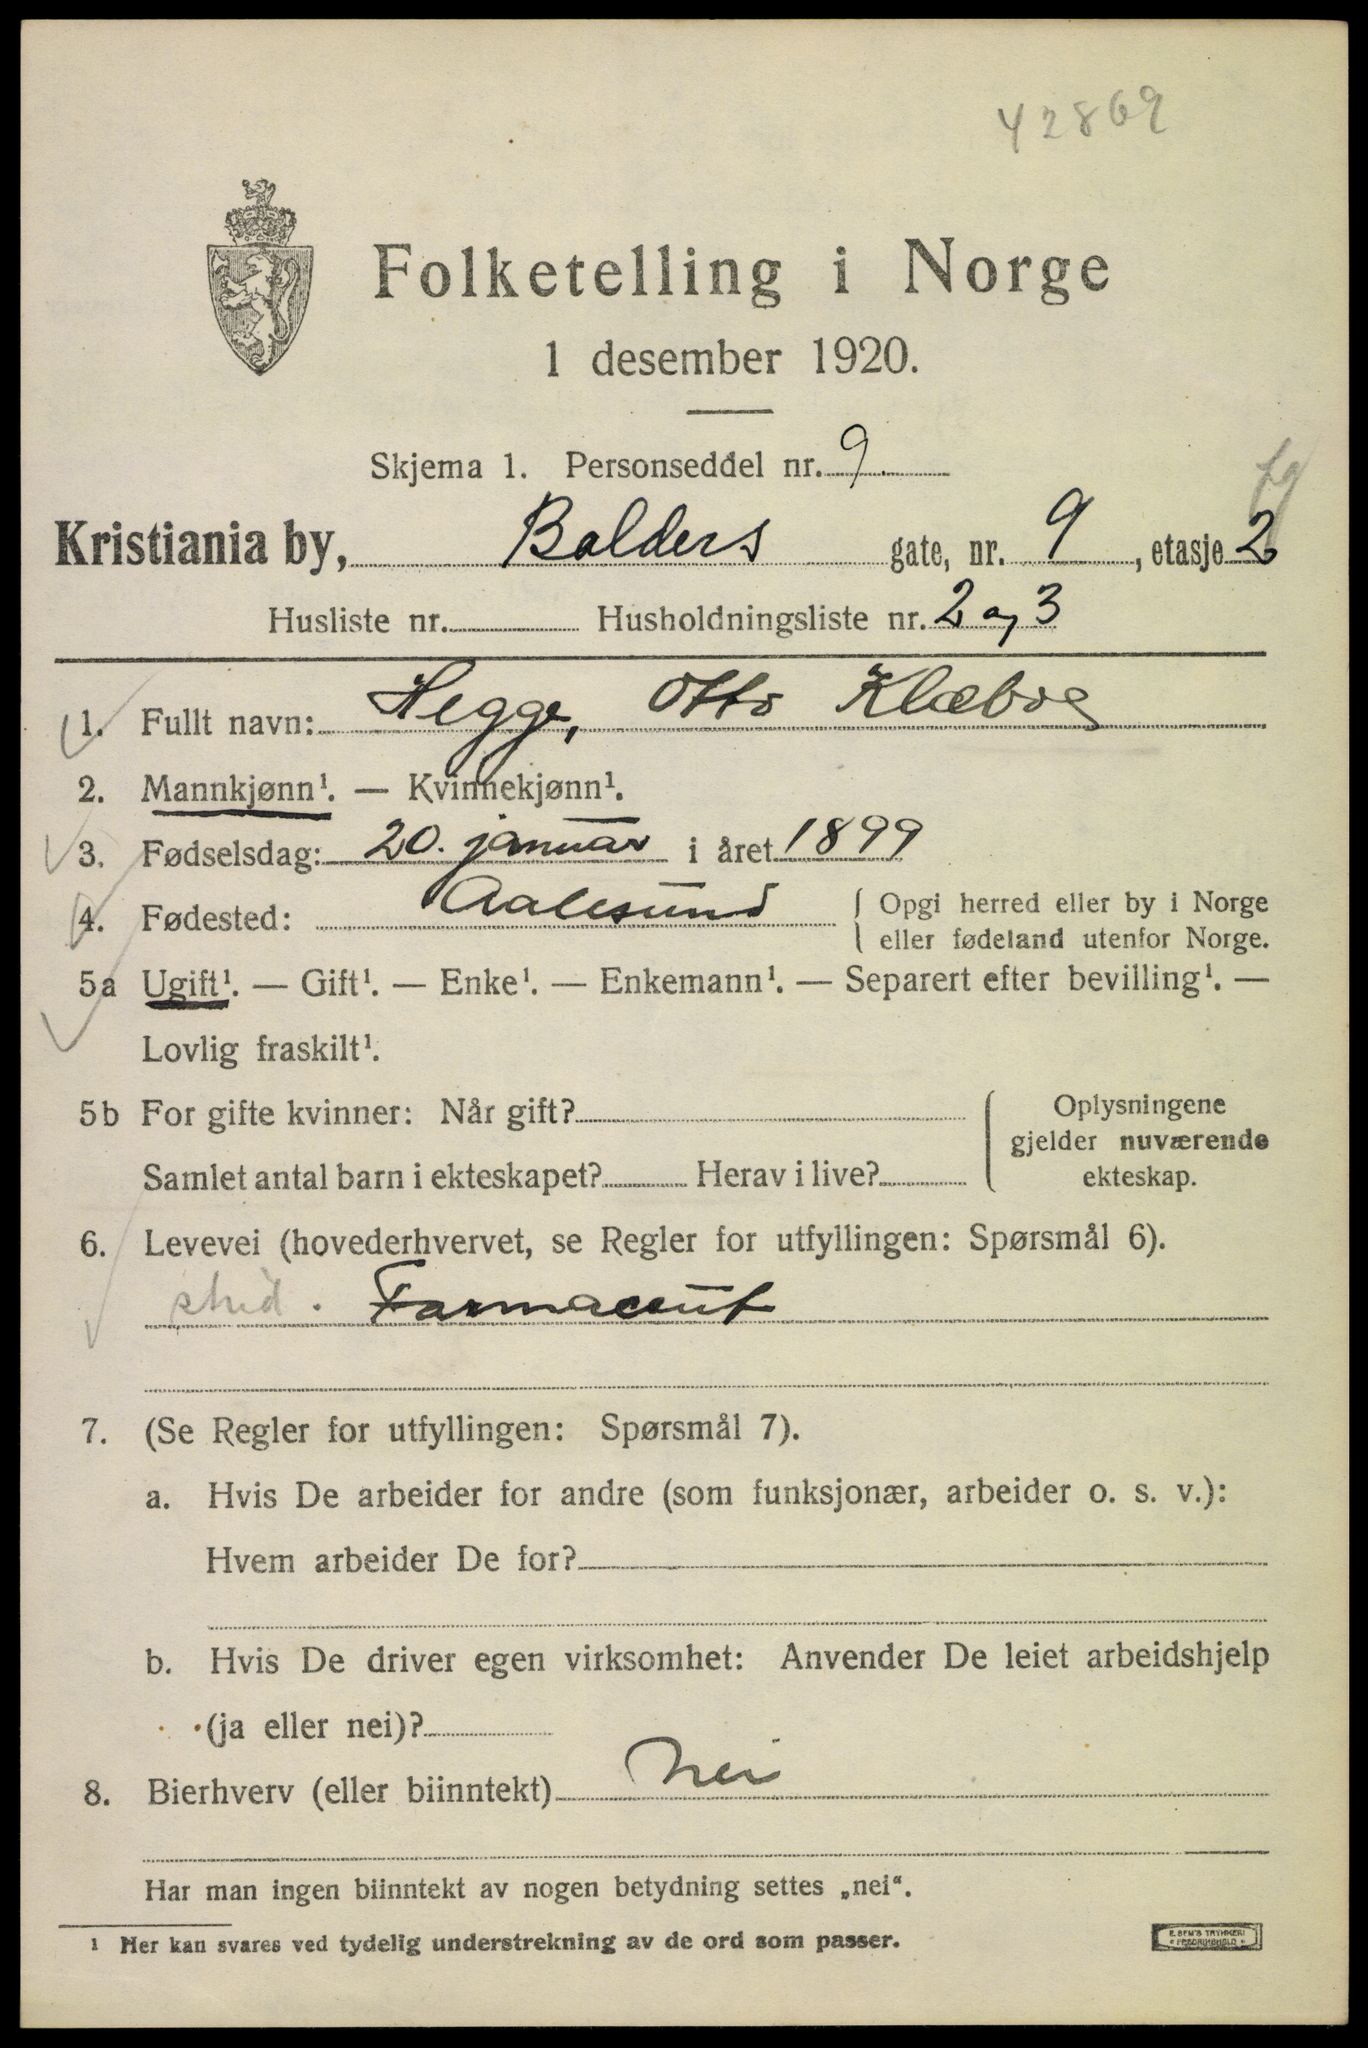 42869
Folketelling i Norge
1 desember 1920.
Skjema 1. Personseddel nr. 9.
Kristiania by, Balders gate, nr. 9, etasje 2
Husliste nr. Husholdningsliste nr. 2 og 3
1. Fullt navn: Hegge, Otto Klæboe
2. Mannkjønn¹. — Kvinnekjønn¹.
3. Fødselsdag: 20. januar i året 1899
4. Fødested: Aalesund { Opgi herred eller by i Norge
eller fødeland utenfor Norge.
5a Ugift¹. — Gift¹. — Enke¹. — Enkemann¹. — Separert efter bevilling¹. —
Lovlig fraskilt¹.
5b For gifte kvinner: Når gift?
Samlet antal barn i ekteskapet? Herav i live?
Oplysningene
gjelder nuværende
ekteskap.
6. Levevei (hovederhvervet, se Regler for utfyllingen: Spørsmål 6).
stud. Farmaceut
7. (Se Regler for utfyllingen: Spørsmål 7).
a. Hvis De arbeider for andre (som funksjonær, arbeider o. s. v.):
Hvem arbeider De for?
b. Hvis De driver egen virksomhet: Anvender De leiet arbeidshjelp
(ja eller nei)?
8. Bierhverv (eller biinntekt) Nei
Har man ingen biinntekt av nogen betydning settes „nei“.
¹ Her kan svares ved tydelig understrekning av de ord som passer.
E. SEM'S TRYKKERI
FREDRIKSHALD